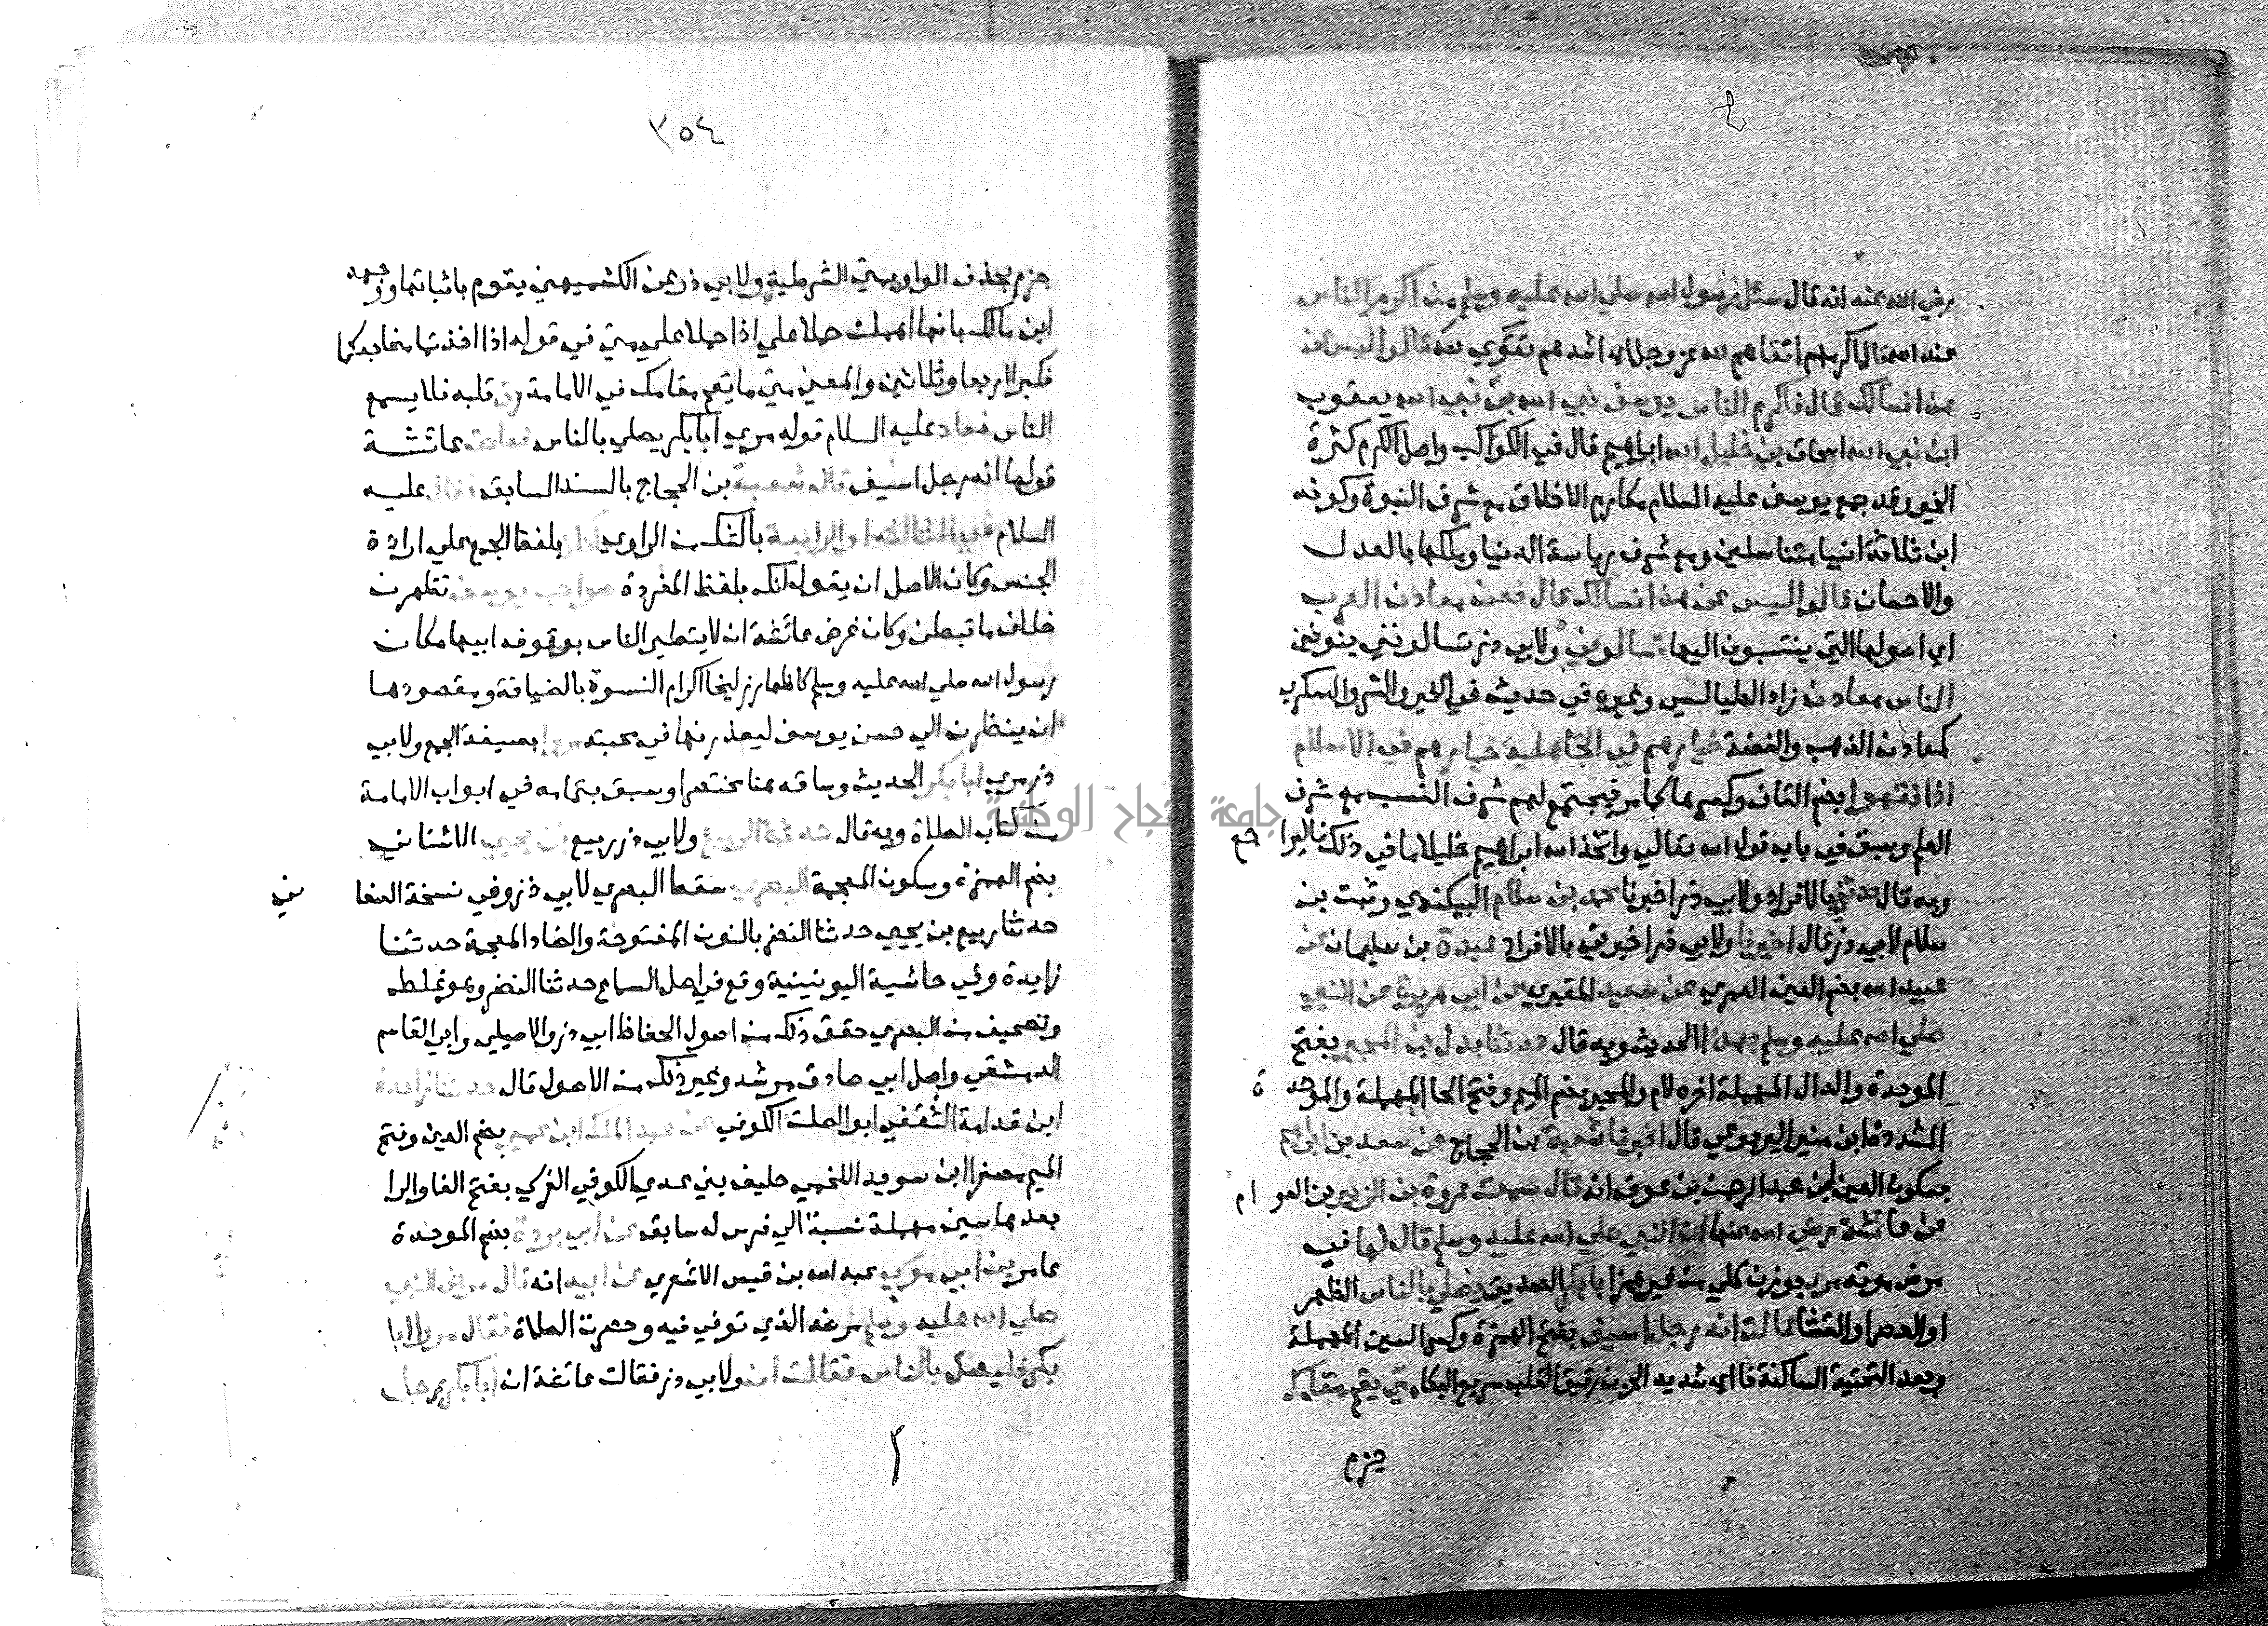 رضي الله عنه انه قال سئل رسول الله صلي الله عليه وسلم من اكرم الناس
عند الله قال اكرمهم اتقاهم لله عز وجل اي اشدهم تقوي لله قالوا ليس عن
هذا نسالك قال فاكرم الناس يوسف نبي الله بن نبي الله يعقوب
ابن نبي الله اسحاق بن خليل الله ابراهيم قال في الكواكب واصل الكرم كثرة
الخير وقد جمع يوسف عليه السلام مكارم الاخلاق مع شرف النبوة وكونه
ابن ثلاثة انبيا متناسلين ومع شرف رياسة الدنيا وملكها بالعدل
والاحسان قالوا ليس عن هذا نسالك قال فعن معادن العرب
اي اصولها التي ينتسبون اليها تسالوني ولابي ذر تسالونني بنونين
الناس معادن زاد الطيالسي وغيره في حديث في الخير والشر والعسكري
كمعادن الذهب والفضة خيارهم في الجاهلية خيارهم في الاسلام
اذا فقهوا بضم القاف وكسرها كما مر فيجتمع لهم شرف النسب مع شرف
العلم وسبق في باب قول الله تعالي واتخذ الله ابراهيم خليلا ما في ذلك فاليراجع
وبه قال حدثني بالافراد ولابي ذر اخبرنا محمد بن سلام البيكندي وثبت بن
سلام لابي ذر قال اخبرنا ولابي ذر اخبرني بالافراد عبدة بن سليمان عن
عبيد الله بضم العين العمري عن سعيد المقبري عن ابي هريرة عن النبي
صلي الله عليه وسلم بهذا الحديث وبه قال حدثنا بدل بن المحبر بفتح
الموحدة والدال المهملة اخره لام والمحبر بضم الميم وفتح الحا المهملة والموحدة
المشددة ابن منير اليربوعي قال اخبرنا شعبة بن الحجاج عن سعد بن ابراهيم
بسكون العين ابن عبد الرحمن بن عوف انه قال سمعت عروة بن الزبير بن العوام
عن عائشة رضي الله عنها ان النبي صلي الله عليه وسلم قال لها في
مرض موته مري بوزن كلي من غير همز ابا بكر الصديق يصلي بالناس الظهر
او العصر او العشا قالت انه رجل اسيف بفتح الهمزة وكسر السين المهملة
وبعد التحتية الساكنة فا اي شديد الحزن رقيق القلب سريع البكا متي يقم مقامك
جزم
٣٥٤
جزم بحذف الواو بمتي الشرطية ولابي ذر عن الكشميهني يقوم باثباتها ووجهه
ابن مالك بانها اهملت حملا علي اذا حملا علي متي في قوله اذا اخذتما مضاجعكما
فكبرا اربعا وثلاثين والمعني متي ما يقم مقامك في الامامة رق قلبه فلا يسمع
الناس فعاد عليه السلام قوله مري ابا بكر يصلي بالناس فعادت عائشة
قولها انه رجل اسيف قال شعبة بن الحجاج بالسند السابق فقال عليه
السلام في الثالثة او الرابعة بالشك من الراوي انكن بلفظ الجمع علي ارادة
الجنس وكان الاصل ان يقول انك بلفظ المفردة صواحب يوسف تظهرن
خلاف ما تبطن وكان غرض عائشة ان لا يتطير الناس بوقوف ابيها مكان
رسول الله صلي الله عليه وسلم كاظهار زليخا اكرام النسوة بالضيافة ومقصودها
ان ينظرن الي حسن يوسف ليعذرنها في محبته مروا بصيغة الجمع ولابي
ذر مري ابا بكر الحديث وساقه هنا مختصرا وسبق بتمامه في ابواب الامامة
من كتاب الصلاة وبه قال حدثنا الربيع ولابي ذر ربيع بن يحيي الاشناني
بضم الهمزة وسكون المعجمة البصري سقط البصري لابي ذر وفي نسخة الصغاني
حدثنا ربيع بن يحيي حدثنا النضر بالنون المفتوحة والضاد المعجمة حدثنا
زايدة وفي حاشية اليونينية وقع في اصل السماع حدثنا النضر وهو غلط
وتصحيف من البصري حقق ذلك من اصول الحفاظ ابي ذر والاصيلي وابي القاسم
الدمشقي واصل ابي صادق مرشد وغير ذلك من الاصول قال حدثنا زايدة
ابن قدامة الثقفي ابو الصلت الكوفي عن عبد الملك ابن عمير بضم العين وفتح
الميم مصغرا ابن سويد اللخمي حليف بني عدي الكوفي الفرسي بفتح الفا والرا
بعدها سين مهملة نسبة الي فرس له سابق عن ابي بردة بضم الموحدة
عامر بن ابي موسي عبد الله بن قيس الاشعري عن ابيه انه قال مرض النبي
صلي الله عليه وسلم مرضه الذي توفي فيه وحضرت الصلاة فقال مروا ابا
بكر فليصل بالناس فقالت ولابي ذر فقالت عائشة ان ابا بكر رجل
جامعة النجاح الوطنية